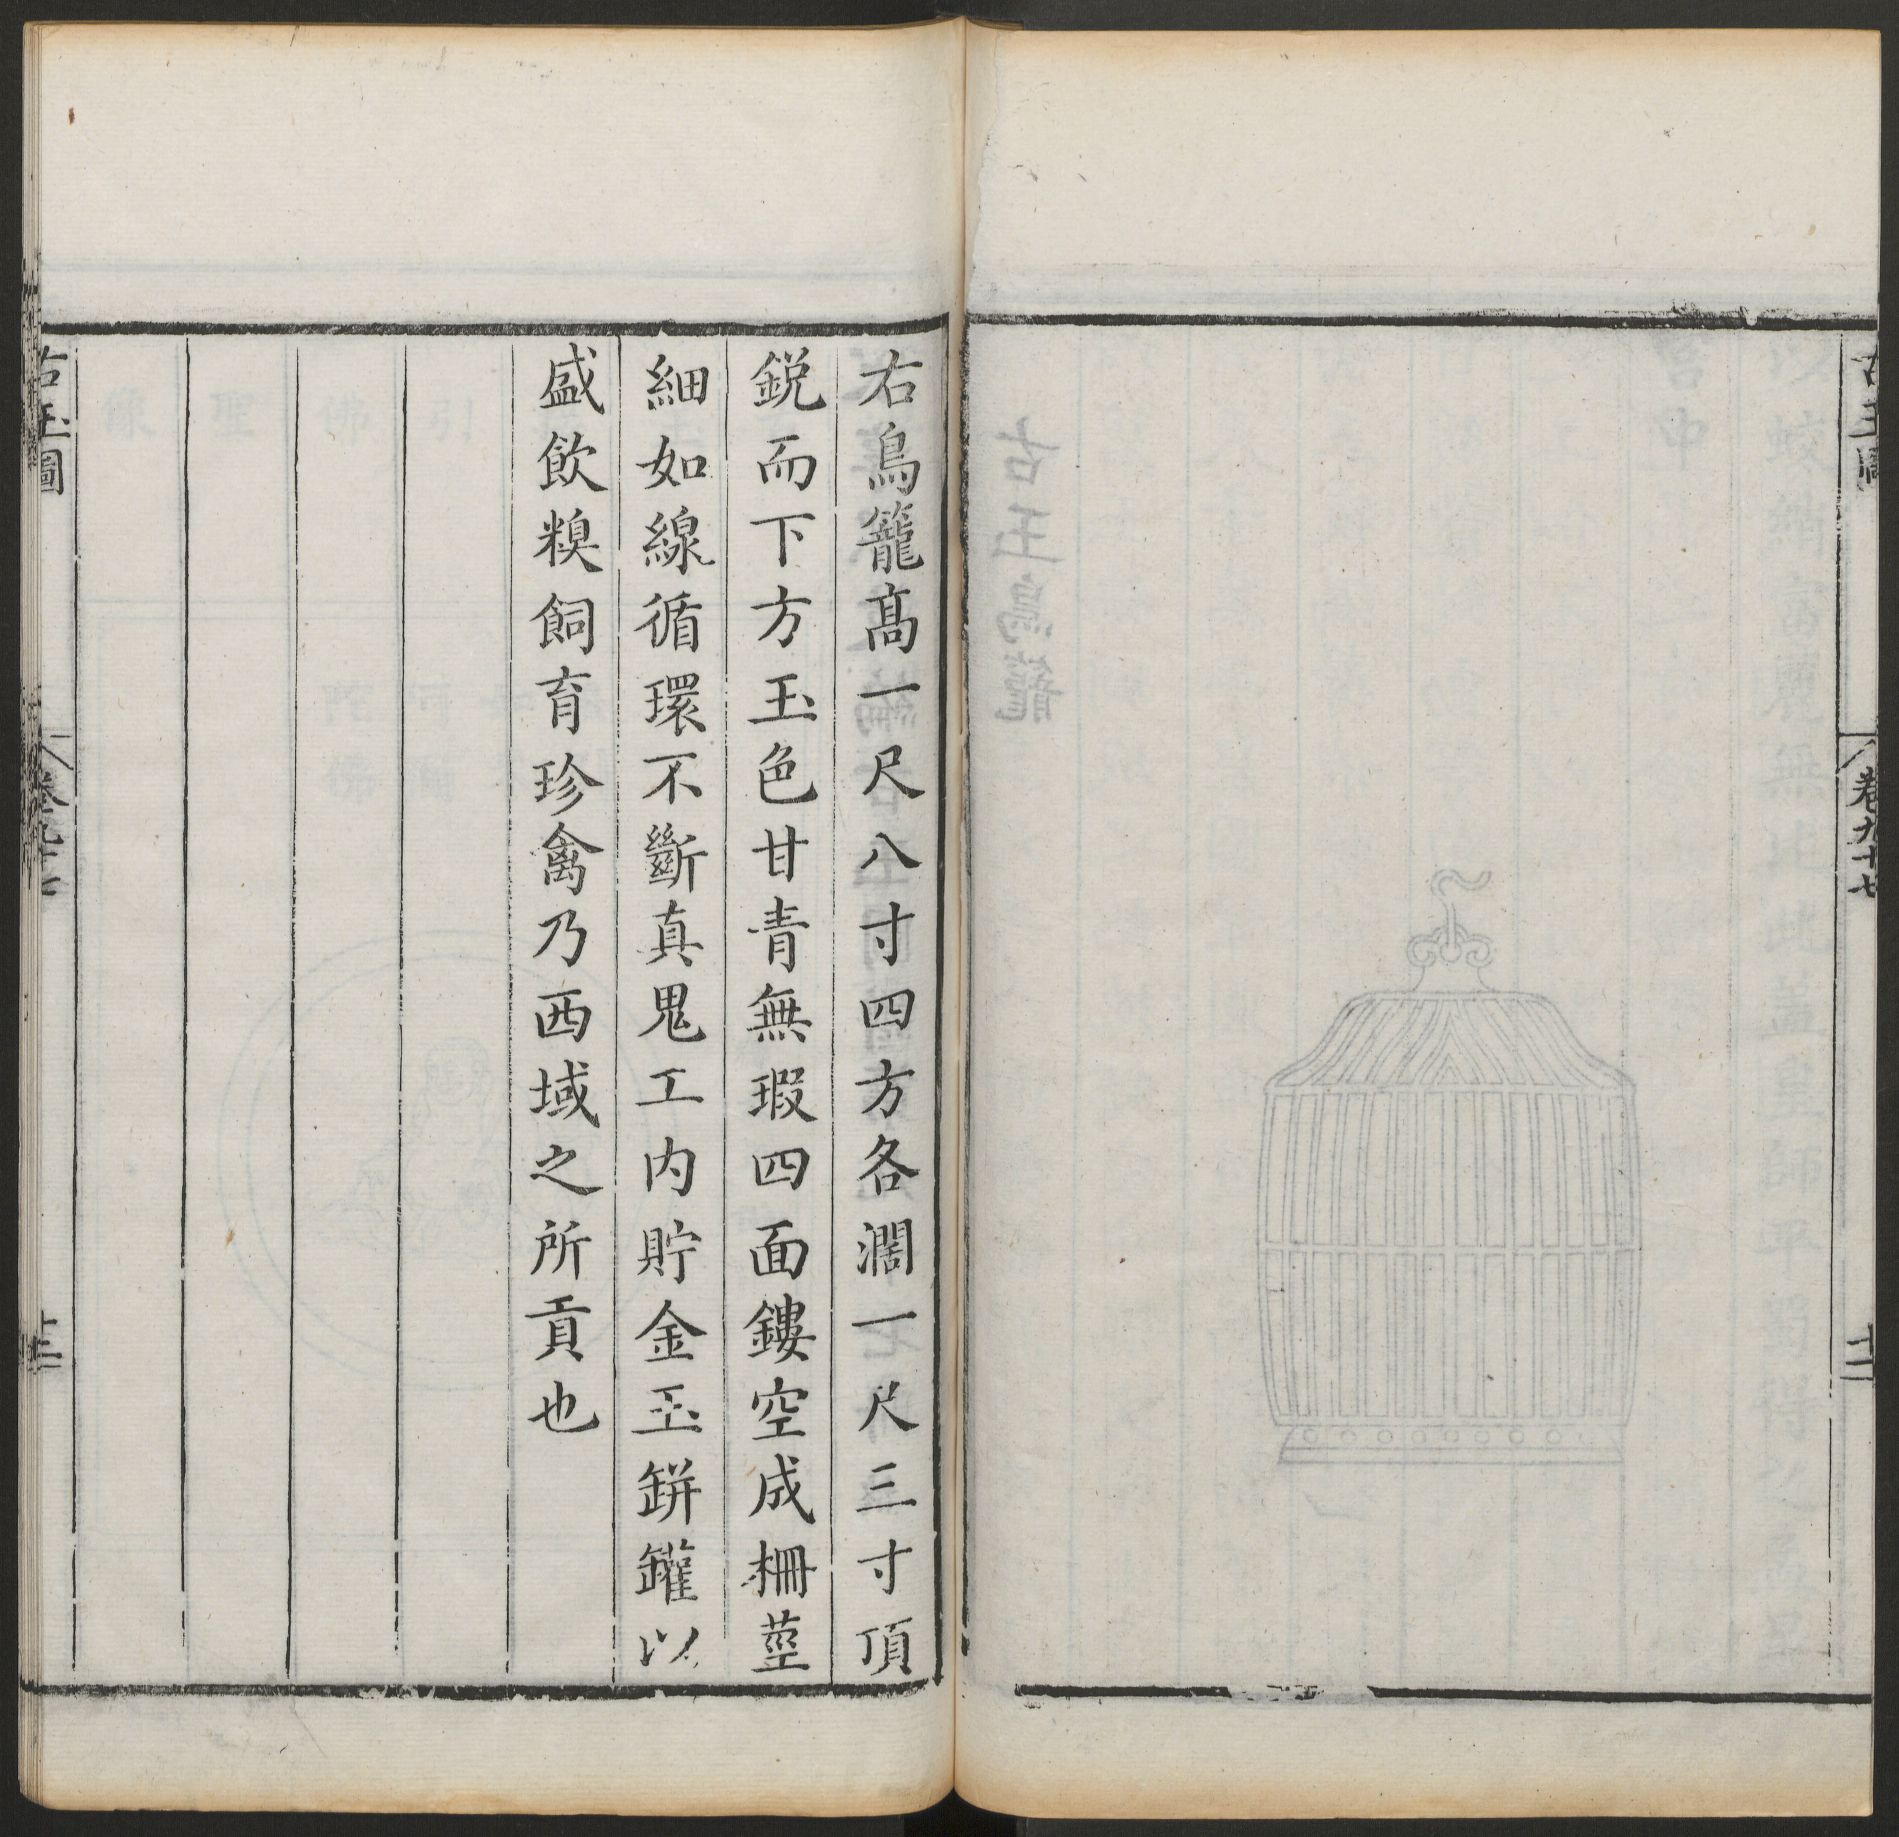 古玉圖
卷九十七
十二
右鳥籠髙一尺八寸四方各濶一尺三寸頂
鋭而下方玉色甘青無瑕四面鏤空成柵莖
細如線循環不斷真鬼工内貯金玉缾罐以
盛飲糗飼育珍禽乃西域之所貢也
古玉圖
卷九十七
十三